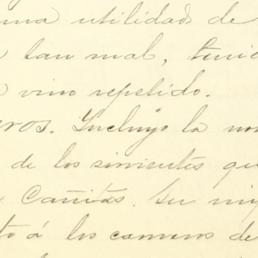 una utilidad de
tan mal, tenid
vino repetido.
ros. Incluyo la no
de los simientes qu
Cañitas. Su mu
to á los caminos de